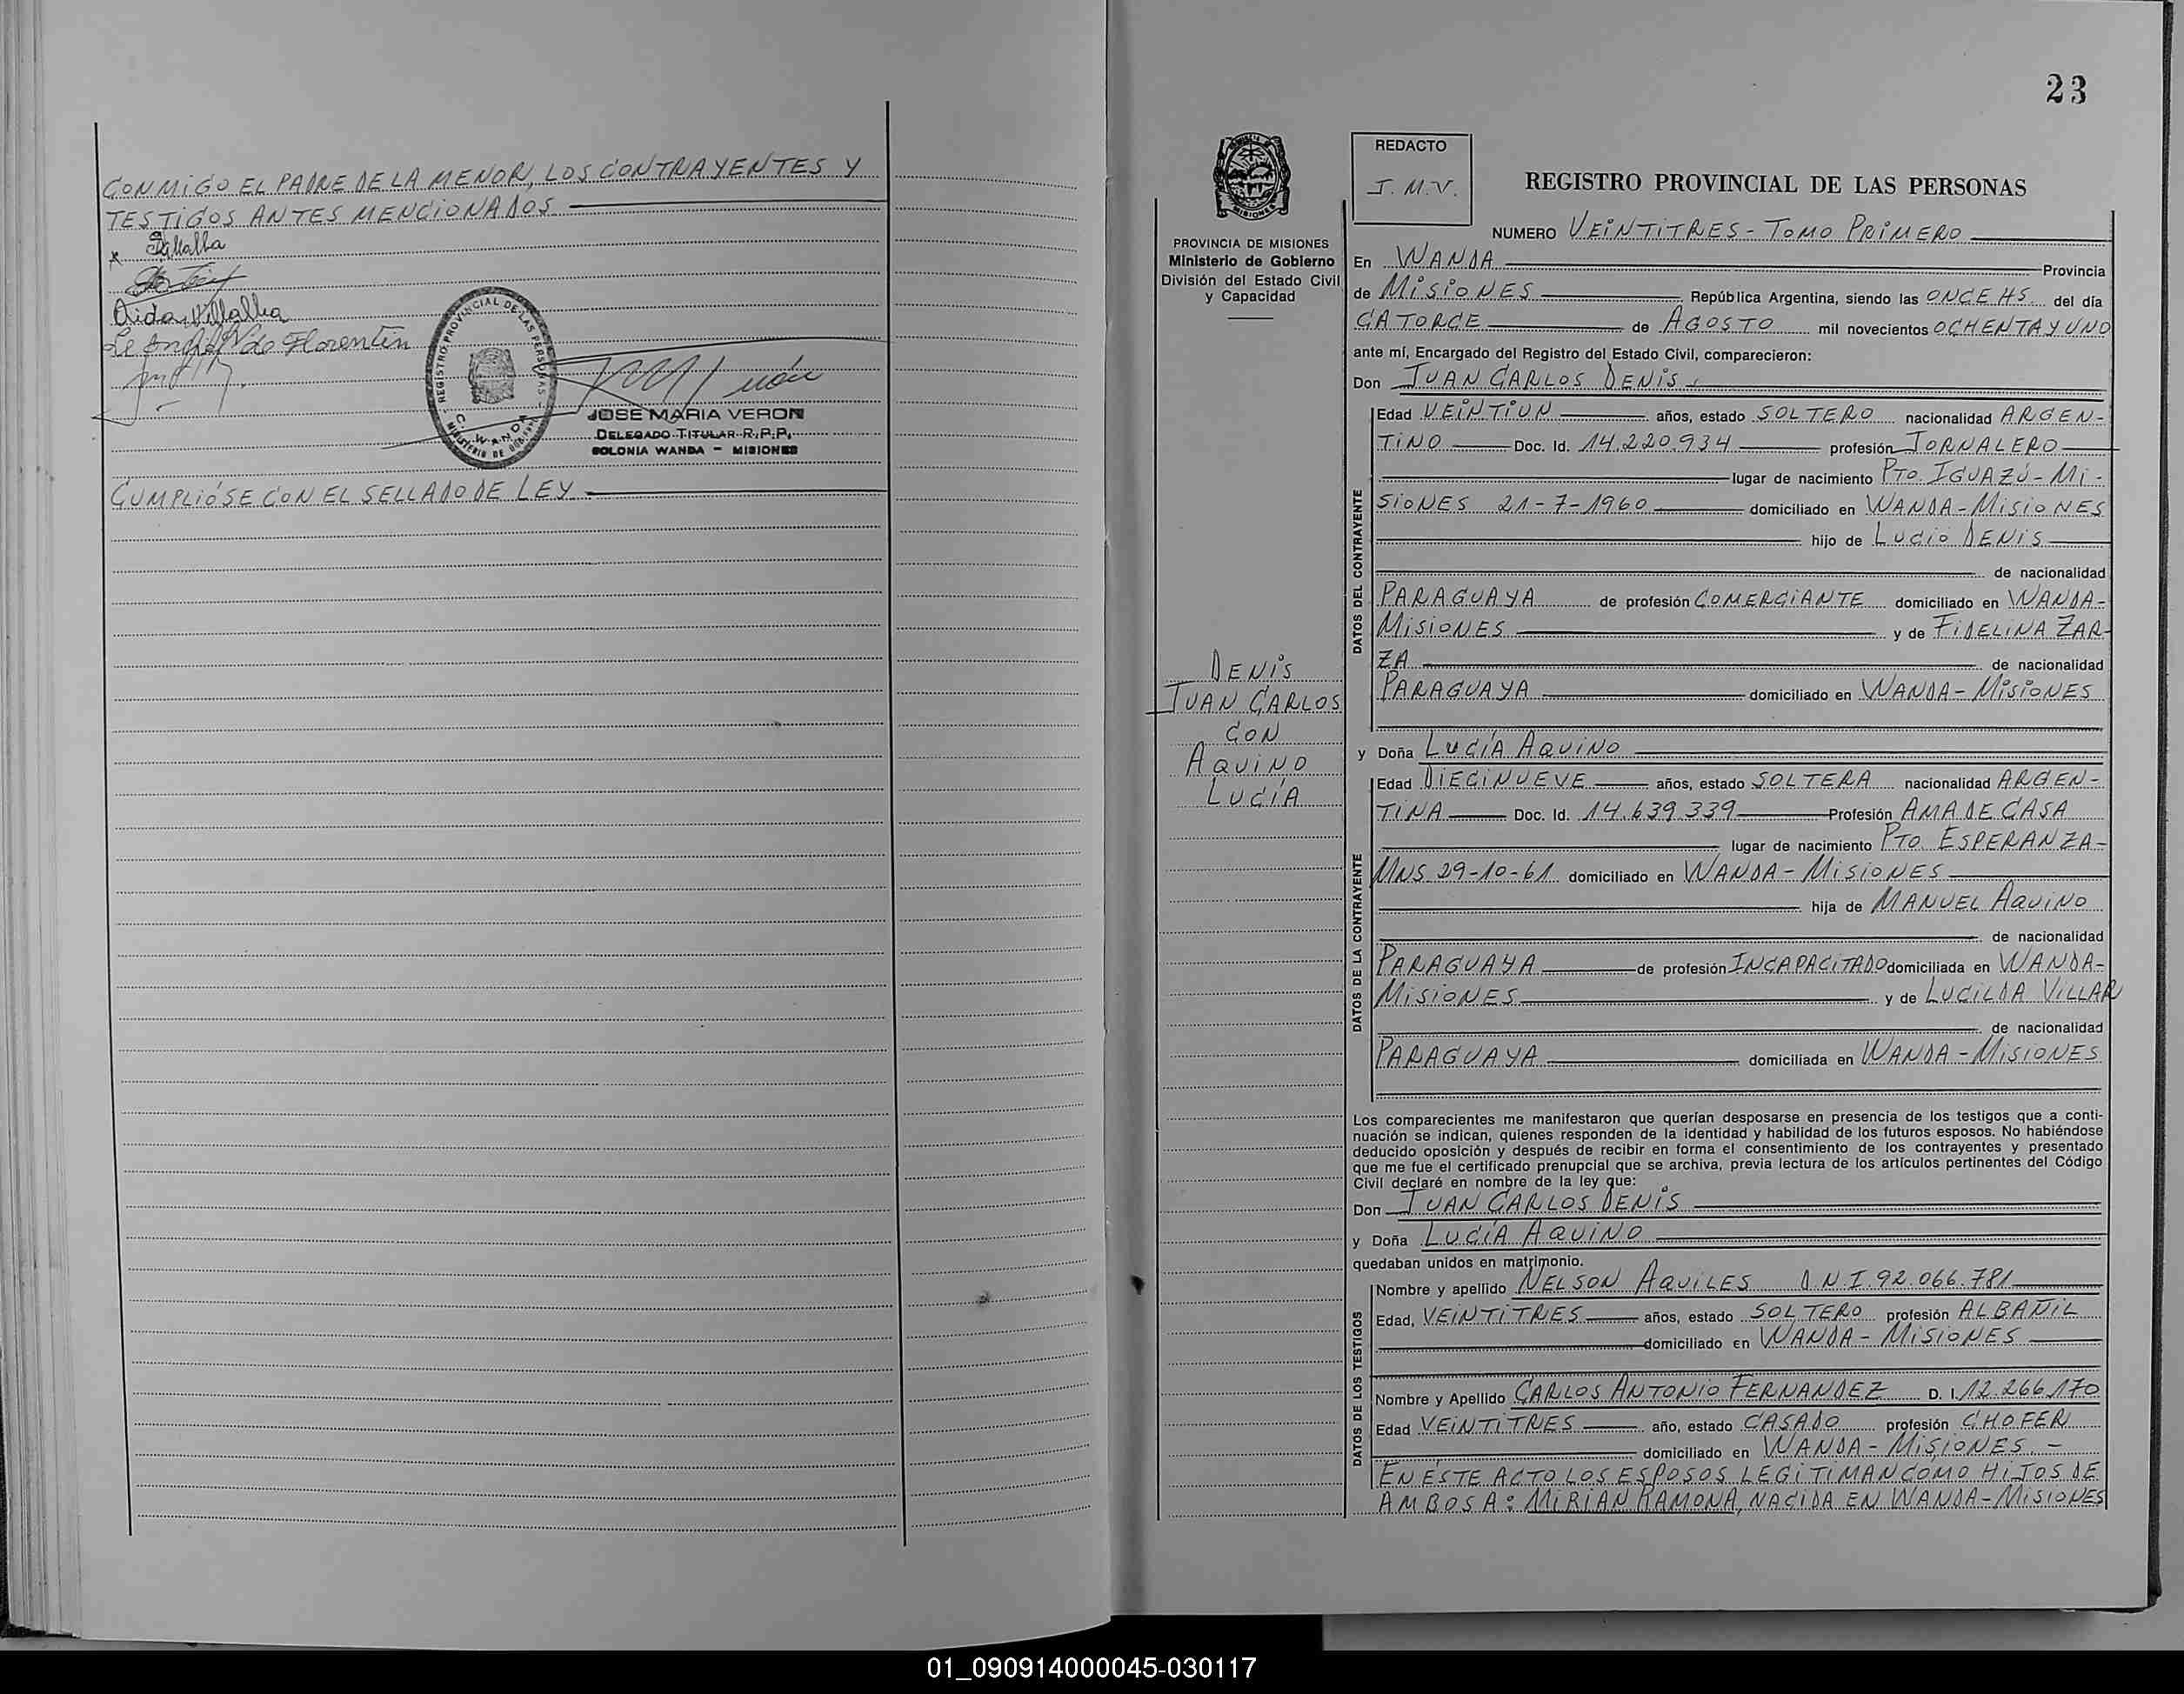 CONMIGO EL PADRE DE LA MENOR, LOS CONTRAYENTES Y
TESTIGOS ANTES MENCIONADOS.
x Villalba
Aida Villalba
de Florentín
REGISTRO PROVINCIAL DE LAS PERSONAS
C. WANDA
MINISTERIO DE GOBIERNO
JOSE MARIA VERON
DELEGADO TITULAR R.P.P.
COLONIA WANDA - MISIONES
CUMPLIÓSE CON EL SELLADO DE LEY.
23
MISIONES
PROVINCIA DE MISIONES
Ministerio de Gobierno
División del Estado Civil
y Capacidad
DENIS
JUAN CARLOS
CON
AQUINO
LUCÍA
REDACTO
J. M. V.
REGISTRO PROVINCIAL DE LAS PERSONAS
NUMERO VEINTITRES - TOMO PRIMERO
En WANDA Provincia
de MISIONES República Argentina, siendo las ONCE HS. del día
CATORCE de AGOSTO mil novecientos OCHENTA Y UNO
ante mí, Encargado del Registro del Estado Civil, comparecieron:
Don JUAN CARLOS DENIS
DATOS DEL CONTRAYENTE
Edad VEINTIUN años, estado SOLTERO nacionalidad ARGEN-
TINO Doc. Id. 14.220.934 profesión JORNALERO
lugar de nacimiento PTO. IGUAZÚ - MI-
SIONES 21-7-1960 domiciliado en WANDA - MISIONES
hijo de LUCIO DENIS
de nacionalidad
PARAGUAYA de profesión COMERCIANTE domiciliado en WANDA-
MISIONES y de FIDELINA ZAR-
ZA de nacionalidad
PARAGUAYA domiciliado en WANDA - MISIONES
y Doña LUCÍA AQUINO
DATOS DE LA CONTRAYENTE
Edad DIECINUEVE años, estado SOLTERA nacionalidad ARGEN-
TINA Doc. Id. 14.639.339 Profesión AMA DE CASA
lugar de nacimiento PTO. ESPERANZA-
MNS. 29-10-61 domiciliado en WANDA - MISIONES
hija de MANUEL AQUINO
de nacionalidad
PARAGUAYA de profesión INCAPACITADO domiciliada en WANDA-
MISIONES y de LUCILDA VILLAR
de nacionalidad
PARAGUAYA domiciliada en WANDA - MISIONES
Los comparecientes me manifestaron que querían desposarse en presencia de los testigos que a conti-
nuación se indican, quienes responden de la identidad y habilidad de los futuros esposos. No habiéndose
deducido oposición y después de recibir en forma el consentimiento de los contrayentes y presentado
que me fue el certificado prenupcial que se archiva, previa lectura de los artículos pertinentes del Código
Civil declaré en nombre de la ley que:
Don JUAN CARLOS DENIS
y Doña LUCÍA AQUINO
quedaban unidos en matrimonio.
DATOS DE LOS TESTIGOS
Nombre y apellido NELSON AQUILES D.N.I. 92.066.781
Edad, VEINTITRES años, estado SOLTERO profesión ALBAÑIL
domiciliado en WANDA - MISIONES
Nombre y Apellido CARLOS ANTONIO FERNANDEZ D. I. 12.266.170
Edad VEINTITRES año, estado CASADO profesión CHOFER
domiciliado en WANDA - MISIONES. -
EN ESTE ACTO LOS ESPOSOS LEGITIMAN COMO HIJOS DE
AMBOS A: MIRIAN RAMONA, NACIDA EN WANDA - MISIONES
01_090914000045-030117